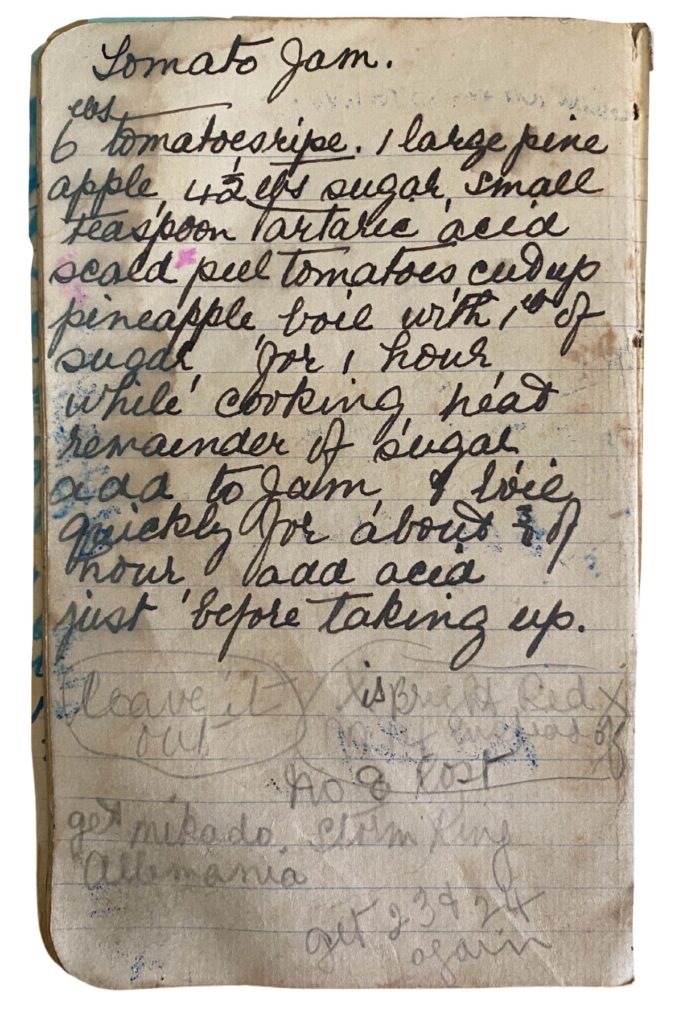 Tomato Jam.
lbs
6 tomatoes ripe. 1 large pine
apple, 4½ lbs sugar, small
teaspoon tartaric acid
scald peel tomatoes cut up
pineapple, boil with 1 lb of
sugar for 1 hour
while cooking heat
remainder of sugar
add to Jam & boil
quickly for about ¾ of
hour add acid
just before taking up.
leave it
out
is Bright Red X
instead of
no 8 Post
get mikado. Storm King
Allemania
get 23 & 24
again